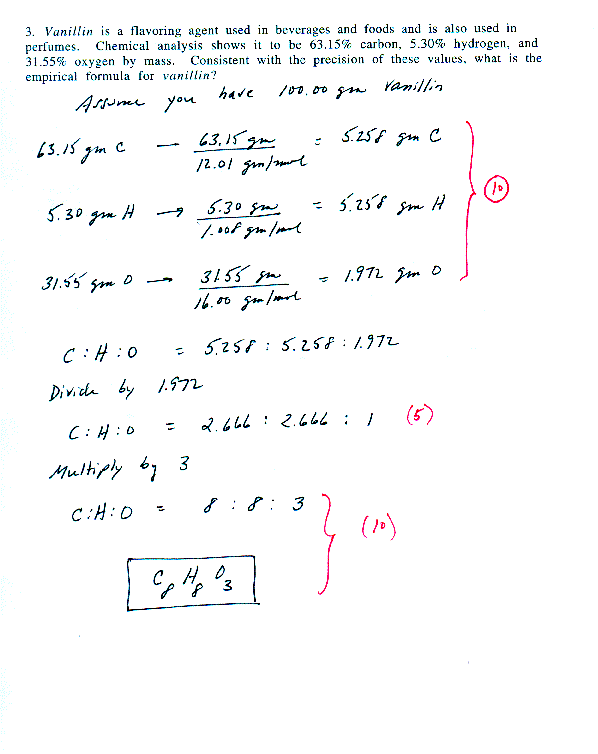 3. Vanillin is a flavoring agent used in beverages and foods and is also used in
perfumes. Chemical analysis shows it to be 63.15% carbon, 5.30% hydrogen, and
31.55% oxygen by mass. Consistent with the precision of these values, what is the
empirical formula for vanillin?
Assume you have 100.00 gm vanillin
63.15 gm C — 63.15 gm / 12.01 gm/mol = 5.258 gm C
5.30 gm H → 5.30 gm / 1.008 gm/mol = 5.258 gm H
(10)
31.55 gm O — 31.55 gm / 16.00 gm/mol = 1.972 gm O
C:H:O = 5.258 : 5.258 : 1.972
Divide by 1.972
C:H:O = 2.666 : 2.666 : 1 (5)
Multiply by 3
C:H:O = 8 : 8 : 3
(10)
C8 H8 O3